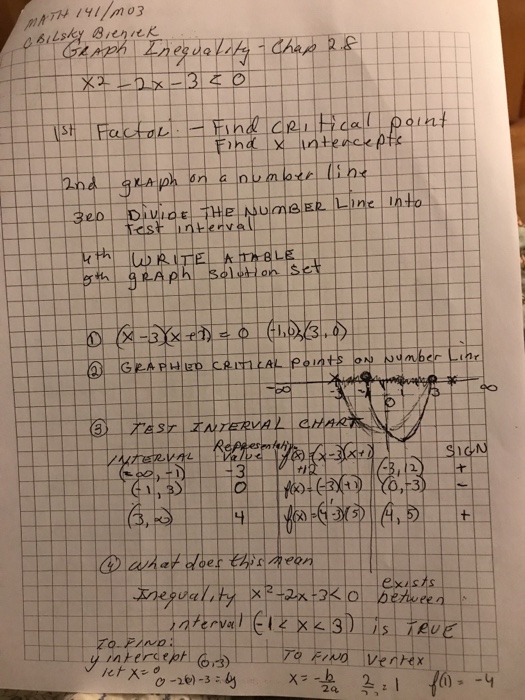 MATH 141/M03
C Bilsky Bieniek
Graph Inequality - Chap 2.8
x2 - 2x - 3 < 0
1st Factor. - Find CRitical point
Find x intercepts
2nd graph on a number line
3RD DIVIDE THE NUMBER Line into
Test interval
4th WRITE A TABLE
5th gRAph solution set
① (x-3)(x+1) = 0 (-1,0)(3,0)
② GRAPHED CRITICAL points ON Number Line
-∞ -3 -1 0 1 3 ∞
③ TEST INTERVAL CHART
INTERVAL Value f(x)=(x-3)(x+1) SIGN
(-∞,-1) -3 +12 (-3,12) +
(-1,3) 0 f(x)=(-3)(+1) (0,-3) -
(3,∞) 4 f(x)=(4-3)(5) (4,5) +
④ what does this mean
Inequality x²-2x-3<0 exists between
interval (-1<x<3) is TRUE
TO FIND:
y intercept (0,3)
let x=0
0-2(0)-3=y
TO FIND Vertex
x = -b/2a 2/2 = 1 f(1) = -4